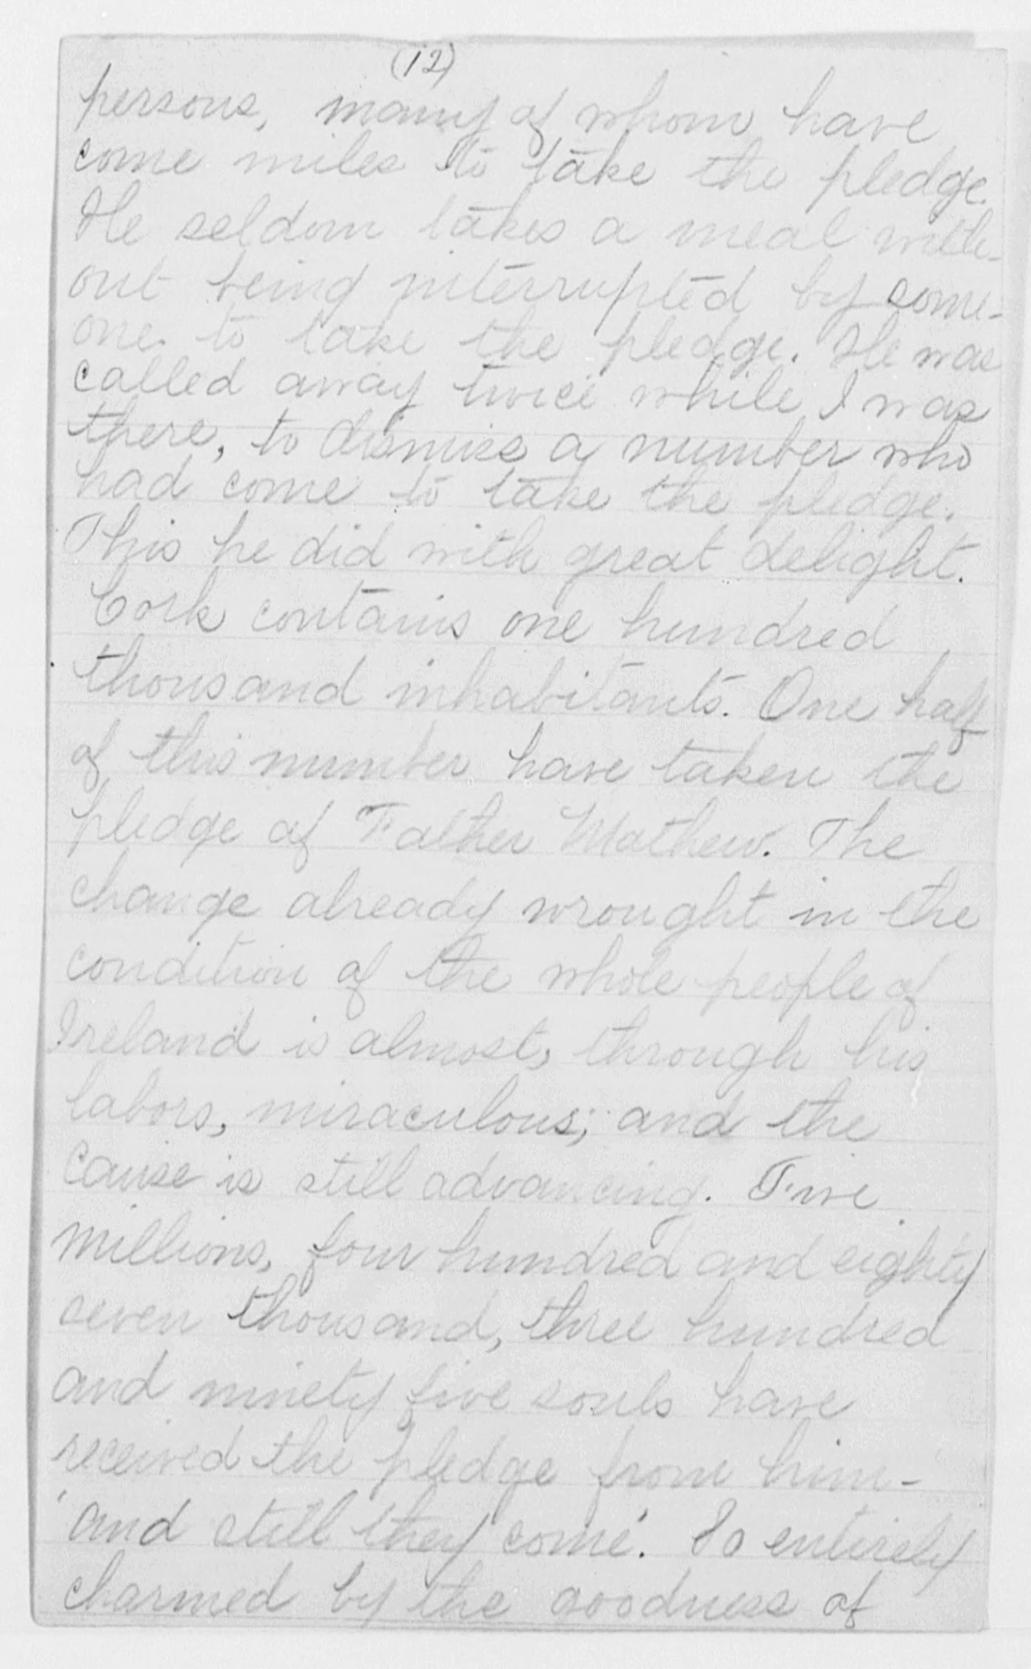 (12)
persons, many of whom have
come miles to take the pledge.
He seldom takes a meal with-
out being interrupted by some-
one to take the pledge. He was
called away twice while I was
there, to dismiss a number who
had come to take the pledge.
This he did with great delight.
Cork contains one hundred
thousand inhabitants. One half
of this number have taken the
pledge of Father Mathew. The
change already wrought in the
condition of the whole people of
Ireland is almost, through his
labors, miraculous; and the
cause is still advancing. Five
millions, four hundred and eighty
seven thousand, three hundred
and ninety five souls have
received the pledge from him-
'and still they come'. So entirely
charmed by the goodness of